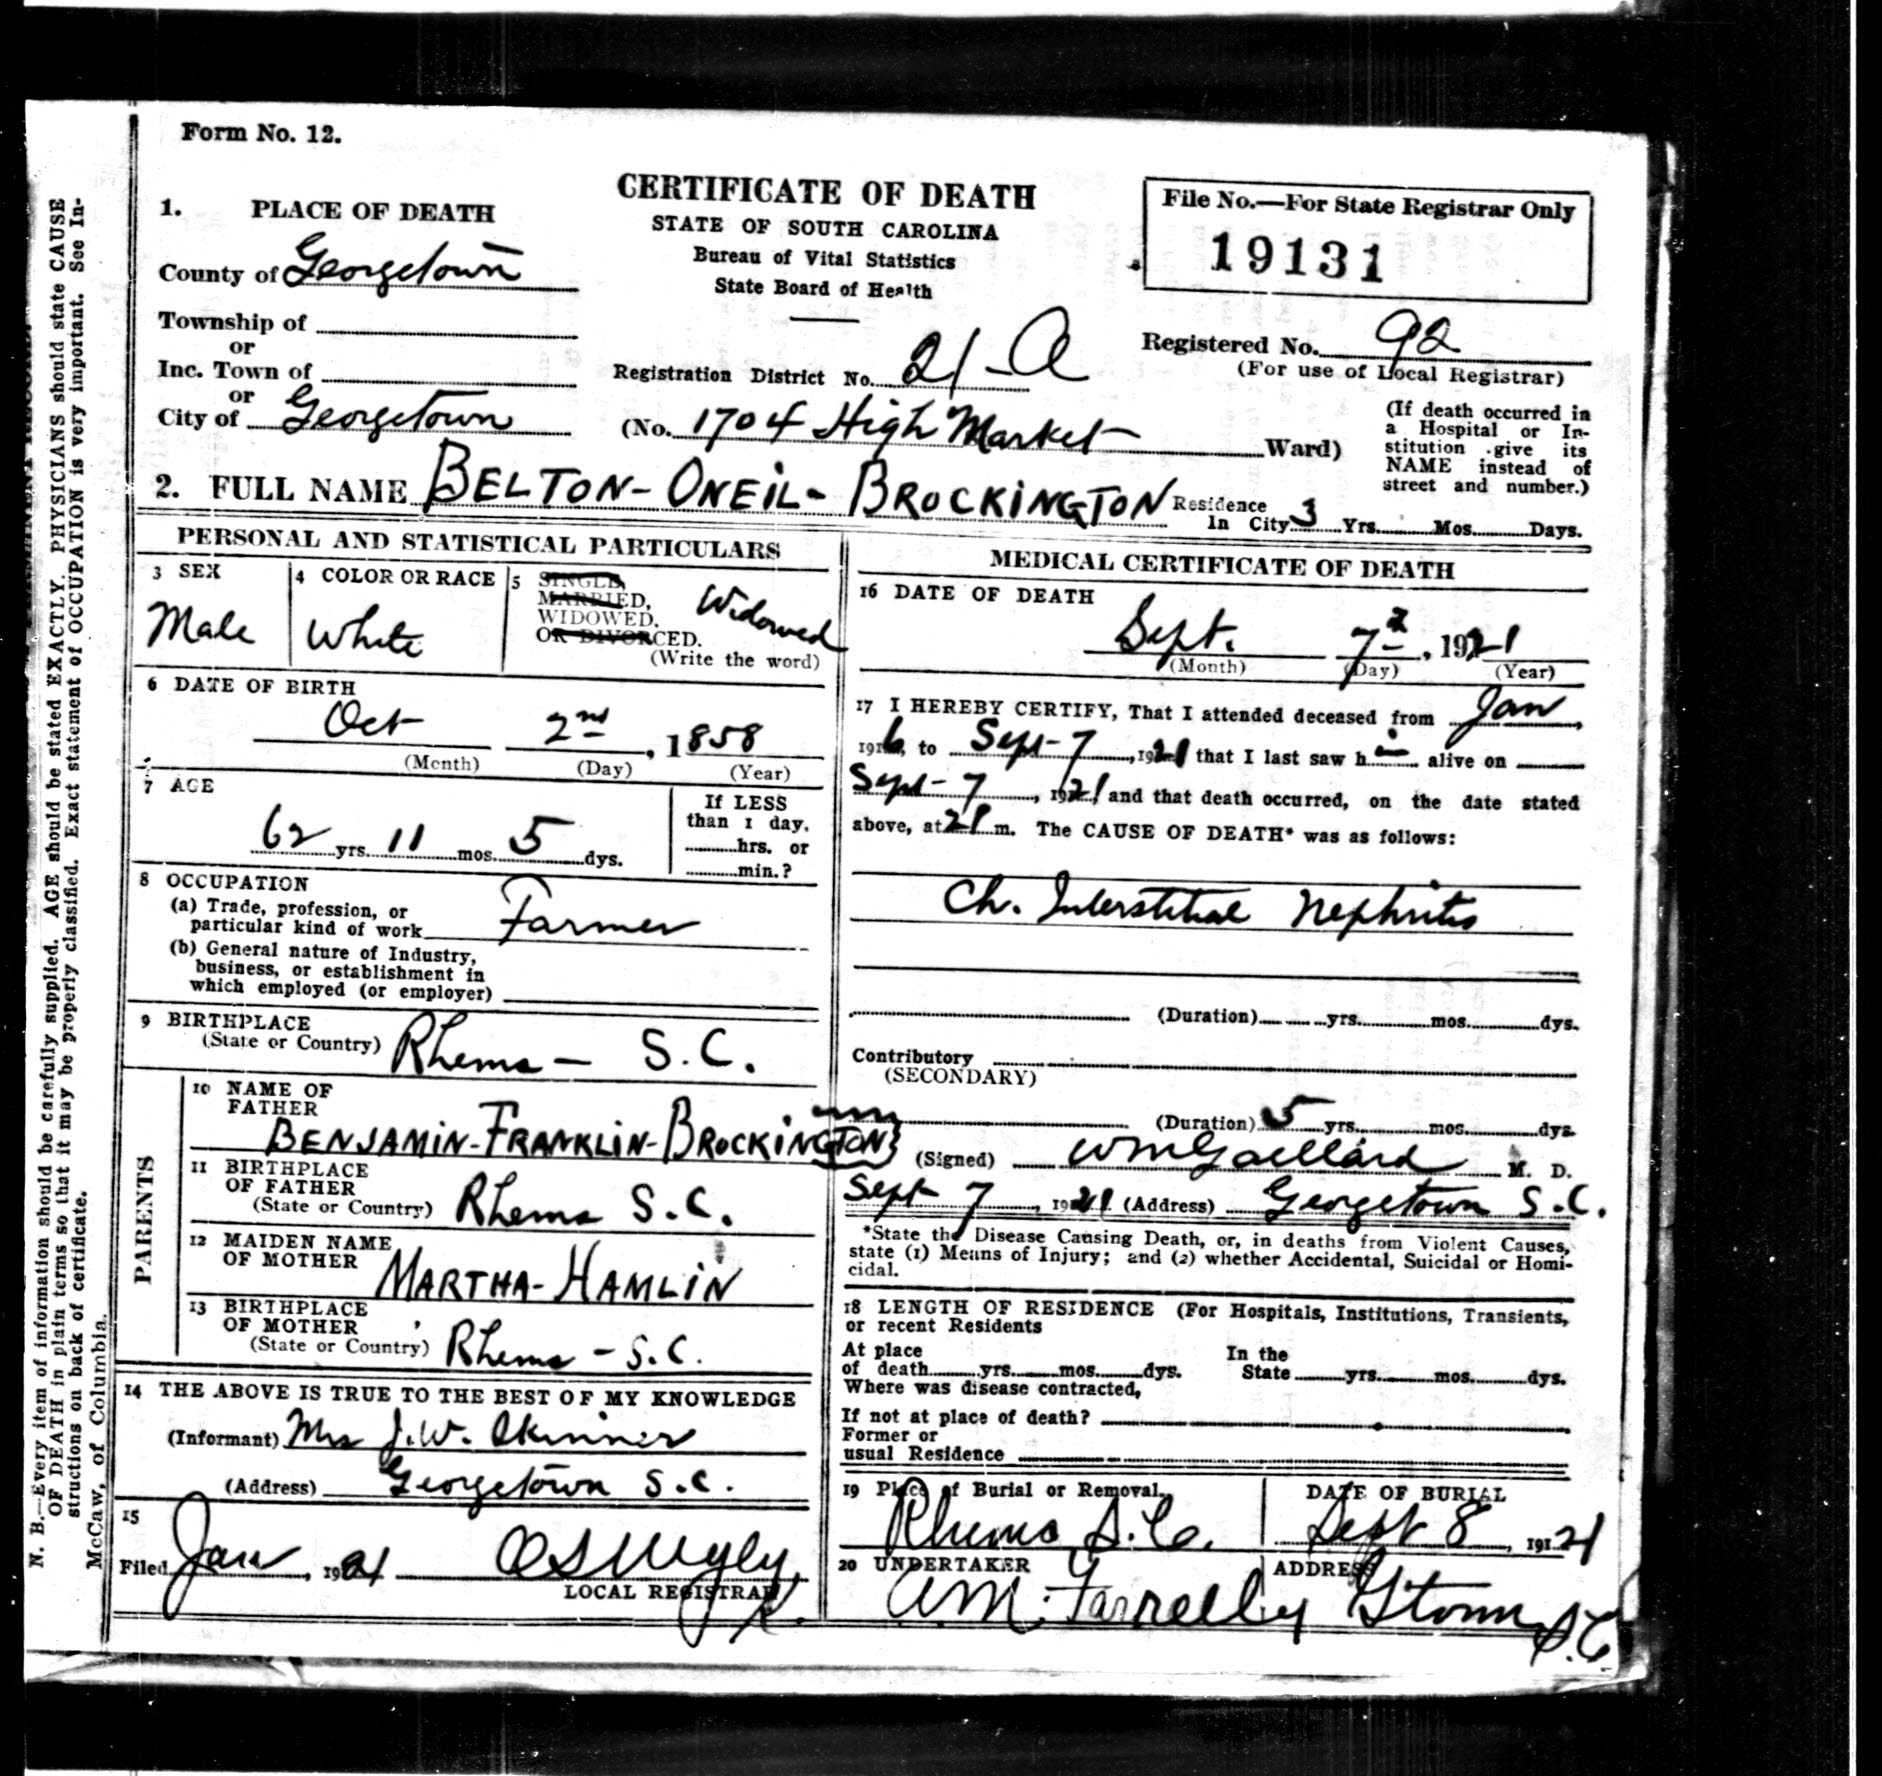 Form No. 12.
CERTIFICATE OF DEATH
STATE OF SOUTH CAROLINA
Bureau of Vital Statistics
State Board of Health
File No.—For State Registrar Only
19131
1. PLACE OF DEATH
County of Georgetown
Township of
or
Inc. Town of
or
City of Georgetown
Registration District No. 21-A
Registered No. 92
(For use of Local Registrar)
(No. 1704 High Market Ward)
(If death occurred in
a Hospital or In-
stitution give its
NAME instead of
street and number.)
2. FULL NAME BELTON-ONEIL-BROCKINGTON
Residence
In City 3 Yrs. Mos. Days.
PERSONAL AND STATISTICAL PARTICULARS
3 SEX
Male
4 COLOR OR RACE
White
5 SINGLE,
MARRIED,
WIDOWED,
OR DIVORCED.
(Write the word)
Widowed
6 DATE OF BIRTH
Oct 2nd, 1858
(Month) (Day) (Year)
7 AGE
62 yrs. 11 mos. 5 dys.
If LESS
than 1 day,
hrs. or
min.?
8 OCCUPATION
(a) Trade, profession, or
particular kind of work Farmer
(b) General nature of Industry,
business, or establishment in
which employed (or employer)
9 BIRTHPLACE
(State or Country) Rhems — S.C.
PARENTS
10 NAME OF
FATHER
BENJAMIN-FRANKLIN-BROCKINGTON
11 BIRTHPLACE
OF FATHER
(State or Country) Rhems S.C.
12 MAIDEN NAME
OF MOTHER
MARTHA-HAMLIN
13 BIRTHPLACE
OF MOTHER
(State or Country) Rhems — S.C.
14 THE ABOVE IS TRUE TO THE BEST OF MY KNOWLEDGE
(Informant) Mrs J.W. Skinner
(Address) Georgetown S.C.
15
Filed Jan, 1921
LOCAL REGISTRAR
MEDICAL CERTIFICATE OF DEATH
16 DATE OF DEATH
Sept. 7, 1921
(Month) (Day) (Year)
17 I HEREBY CERTIFY, That I attended deceased from Jan,
1916, to Sept-7, 1921 that I last saw h im alive on
Sept-7, 1921, and that death occurred, on the date stated
above, at m. The CAUSE OF DEATH* was as follows:
Ch. Interstitial Nephritis
(Duration) yrs. mos. dys.
Contributory
(SECONDARY)
(Duration) 5 yrs. mos. dys.
(Signed) WM Gaillard M. D.
Sept 7, 1921 (Address) Georgetown S.C.
*State the Disease Causing Death, or, in deaths from Violent Causes,
state (1) Means of Injury; and (2) whether Accidental, Suicidal or Homi-
cidal.
18 LENGTH OF RESIDENCE (For Hospitals, Institutions, Transients,
or recent Residents
At place
of death yrs. mos. dys.
In the
State yrs. mos. dys.
Where was disease contracted,
If not at place of death?
Former or
usual Residence
19 Place of Burial or Removal.
Rhems S.C.
DATE OF BURIAL
Sept 8, 1921
20 UNDERTAKER
AM. Farrelly
ADDRESS
Gtown S.C.
N. B.—Every item of information should be carefully supplied. AGE should be stated EXACTLY. PHYSICIANS should state CAUSE
OF DEATH in plain terms so that it may be properly classified. Exact statement of OCCUPATION is very important. See In-
structions on back of certificate.
McCaw, of Columbia.